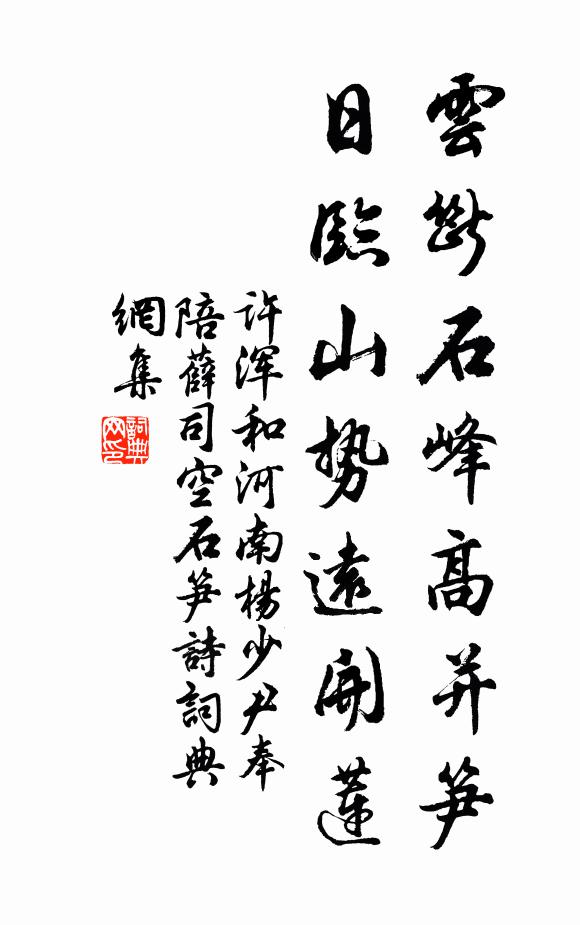 雲斷石峰高并笋
日臨山勢遠開蓮
許渾和河南楊少尹奉
陪薛司空石笋詩詞典
網集
詞典網印